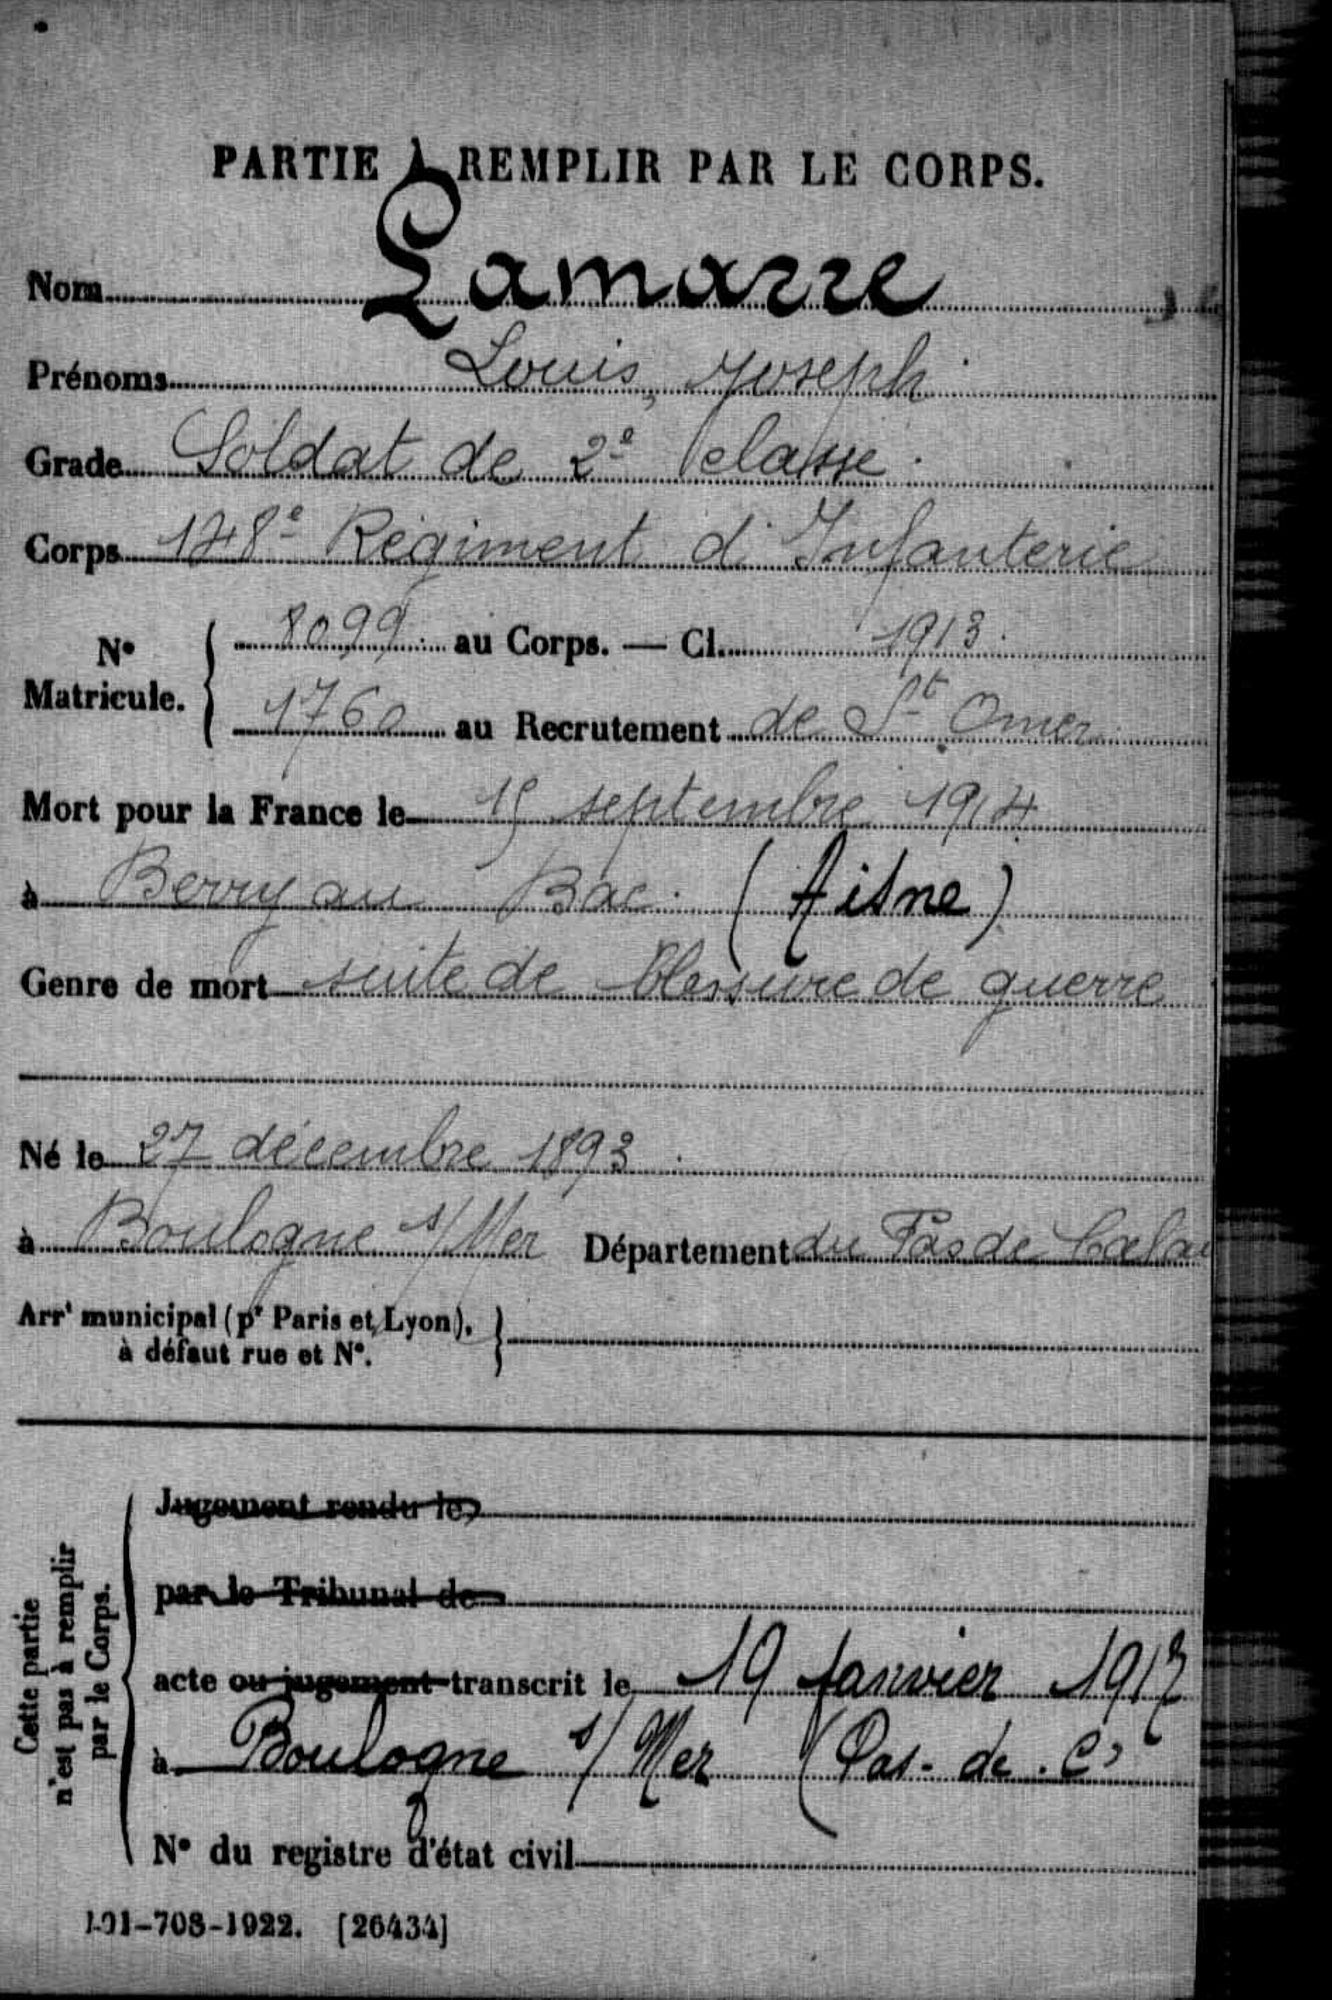 PARTIE À REMPLIR PAR LE CORPS.
Nom Lamarre
Prénoms Louis, Joseph
Grade Soldat de 2e classe.
Corps 148e Régiment d'Infanterie
No Matricule. { 8099. au Corps. — Cl. 1913.
1760 au Recrutement de St Omer
Mort pour la France le 15 septembre 1914
à Berry au Bac. (Aisne)
Genre de mort suite de blessure de guerre
Né le 27 décembre 1893.
à Boulogne s/Mer Département du Pas de Calai
Arrt municipal (pr Paris et Lyon), }
à défaut rue et No.
Cette partie n'est pas à remplir par le Corps.
Jugement rendu le
par le Tribunal de
acte ou jugement transcrit le 19 Janvier 1917
à Boulogne s/Mer (Pas-de.Cs
No du registre d'état civil
101-708-1922. [26434]